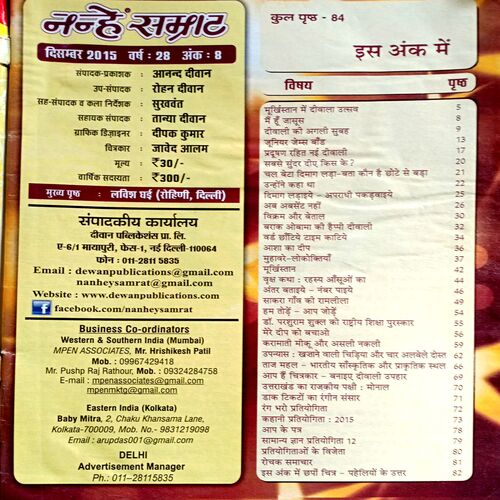 नन्हें सम्राट
दिसम्बर 2015 वर्ष : 28 अंक : 8
संपादक-प्रकाशक : आनन्द दीवान
उप-संपादक : रोहन दीवान
सह-संपादक व कला निर्देशक : सुखवंत
सहायक संपादक : तान्या दीवान
ग्राफिक डिज़ाइनर : दीपक कुमार
चित्रकार : जावेद आलम
मूल्य : ₹30/-
वार्षिक सदस्यता : ₹300/-
मुख्य पृष्ठ : लविश घई (रोहिणी, दिल्ली)
संपादकीय कार्यालय
दीवान पब्लिकेशंस प्रा. लि.
ए-6/1 मायापुरी, फेस-1, नई दिल्ली-110064
फोन : 011-2811 5835
Email : dewanpublications@gmail.com
nanheysamrat@gmail.com
Website : www.dewanpublications.com
f facebook.com/nanheysamrat
Business Co-ordinators
Western & Southern India (Mumbai)
MPEN ASSOCIATES, Mr. Hrishikesh Patil
Mob. : 09967429418
Mr. Pushp Raj Rathour, Mob. : 09324284758
E-mail : mpenassociates@gmail.com
mpenmktg@gmail.com
Eastern India (Kolkata)
Baby Mitra, 2, Chaku Khansama Lane,
Kolkata-700009, Mob. No.- 9831219098
Email : arupdas001@gmail.com
DELHI
Advertisement Manager
Ph.: 011-28115835
कुल पृष्ठ - 84
इस अंक में
विषय पृष्ठ
मूर्खिस्तान में दीवाला उत्सव 5
मैं हूँ जासूस 8
दीवाली की अगली सुबह 9
जूनियर जेम्स बाँड 13
प्रदूषण रहित नई दीवाली 17
सबसे सुंदर दीए किस के? 20
चल बेटा दिमाग लड़ा-बता कौन है छोटे से बड़ा 21
उन्होंने कहा था 22
दिमाग लड़ाये - अपराधी पकड़वाइये 25
अब अबसेंट नहीं 26
विक्रम और बेताल 30
बराक ओबामा की हैप्पी दीवाली 32
वर्ड छाँटिये टाइम काटिये 34
आशा का दीप 36
मुहावरे-लोकोक्तियाँ 37
मूर्खिस्तान 42
वृक्ष कथा : रहस्य आँसुओं का 44
अंतर बताइये - नंबर पाइये 46
साकरा गाँव की रामलीला 51
हम तोड़ें - आप जोड़ें 54
डॉ. परशुराम शुक्ल को राष्ट्रीय शिक्षा पुरस्कार 55
मेरे दीप को बचाओ 56
करामाती मोकू और असली नकली 59
उपन्यास : खज़ाने वाली चिड़िया और चार अलबेले दोस्त 62
ताज महल - भारतीय साँस्कृतिक और प्राकृतिक स्थल 66
आप हैं चित्रकार - बनाइए दीवाली उपहार 69
उत्तराखंड का राजकीय पक्षी : मोनाल 70
डाक टिकटों का रंगीन संसार 71
रंग भरो प्रतियोगिता 72
कहानी प्रतियोगिता : 2015 73
आप के पत्र 78
सामान्य ज्ञान प्रतियोगिता 12 79
प्रतियोगिताओं के विजेता 80
रोचक समाचार 81
इस अंक में छपी चित्र - पहेलियों के उत्तर 82